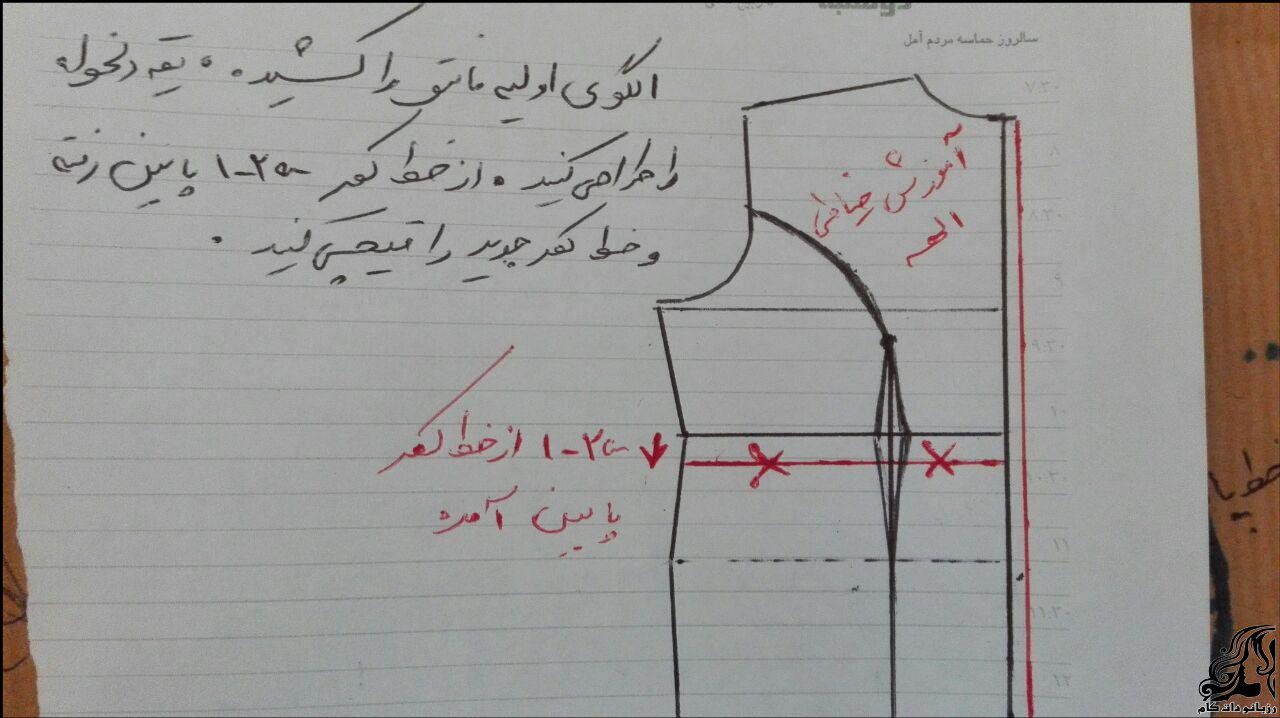 سالروز حماسه مردم آمل
الگوی اولیه مانتو را کشیده . یقه دلخواه
را طراحی کنید . از خط کمر ۲-۱ پایین رفته
و خط کمر جدید را قیچی کنید .
آموزش خیاطی
الهه
۲-۱ از خط کمر
پایین آمده
۷:۳۰
۸
۸:۳۰
۹
۹:۳۰
۱۰
۱۰:۳۰
۱۱
۱۱:۳۰
۱۲
خط با
رزبانو دات کام